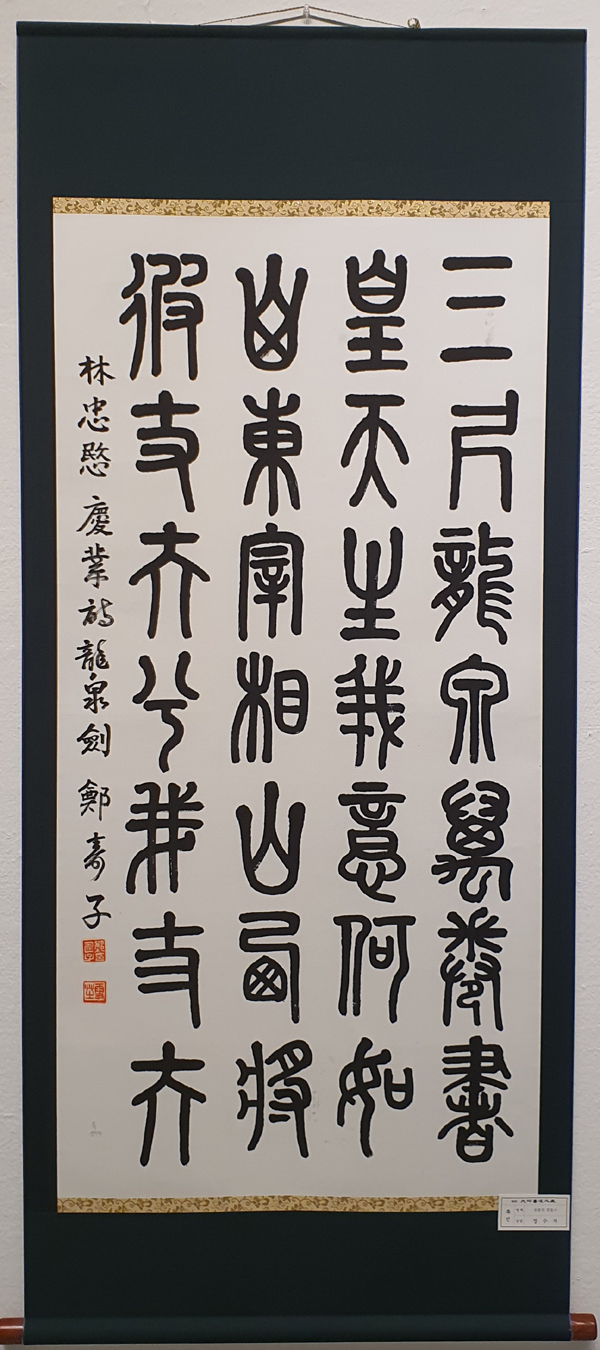 三尺龍泉萬卷書
皇天生我意何如
山東宰相山西將
彼丈夫兮我丈夫
林忠愍慶業詩龍泉劍 鄭壽子
정수자